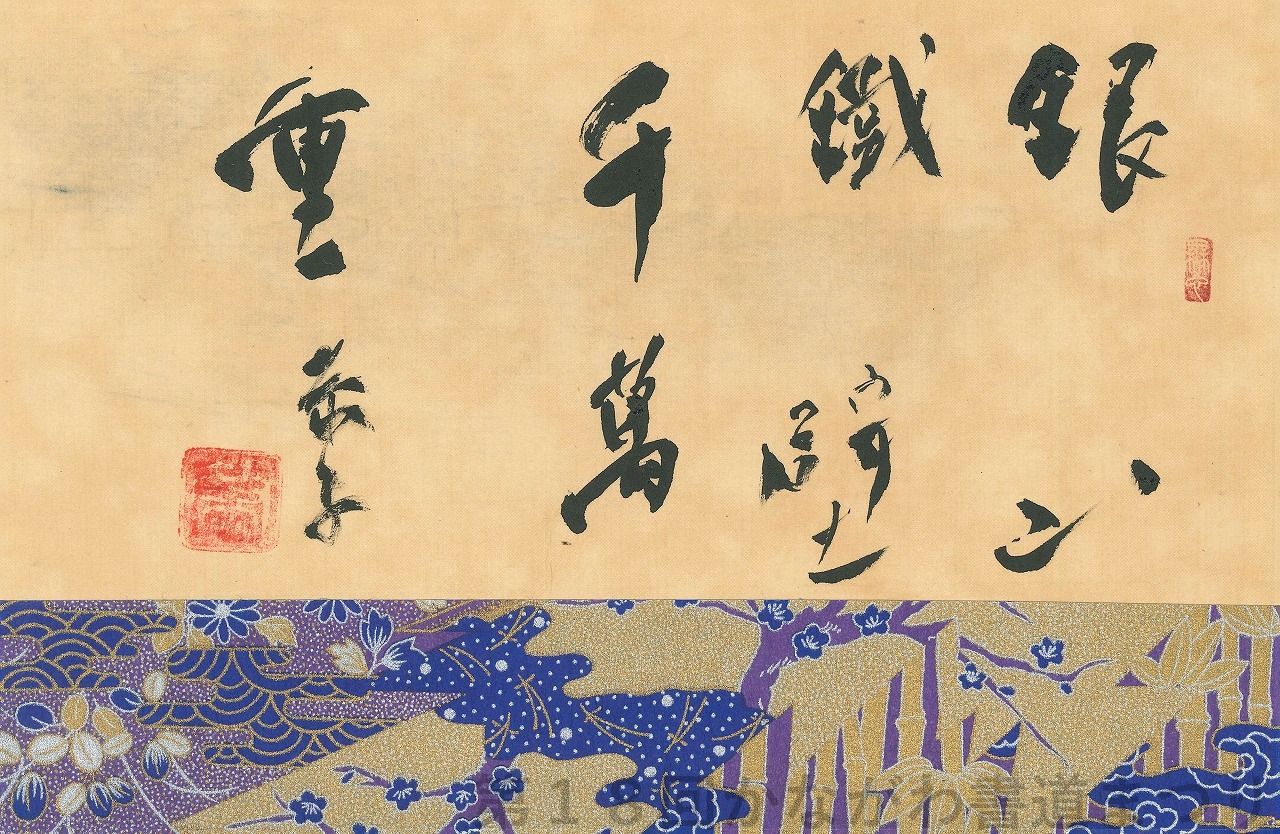 銀山
鐵壁
千萬
重
第18回かながわ書道まつり